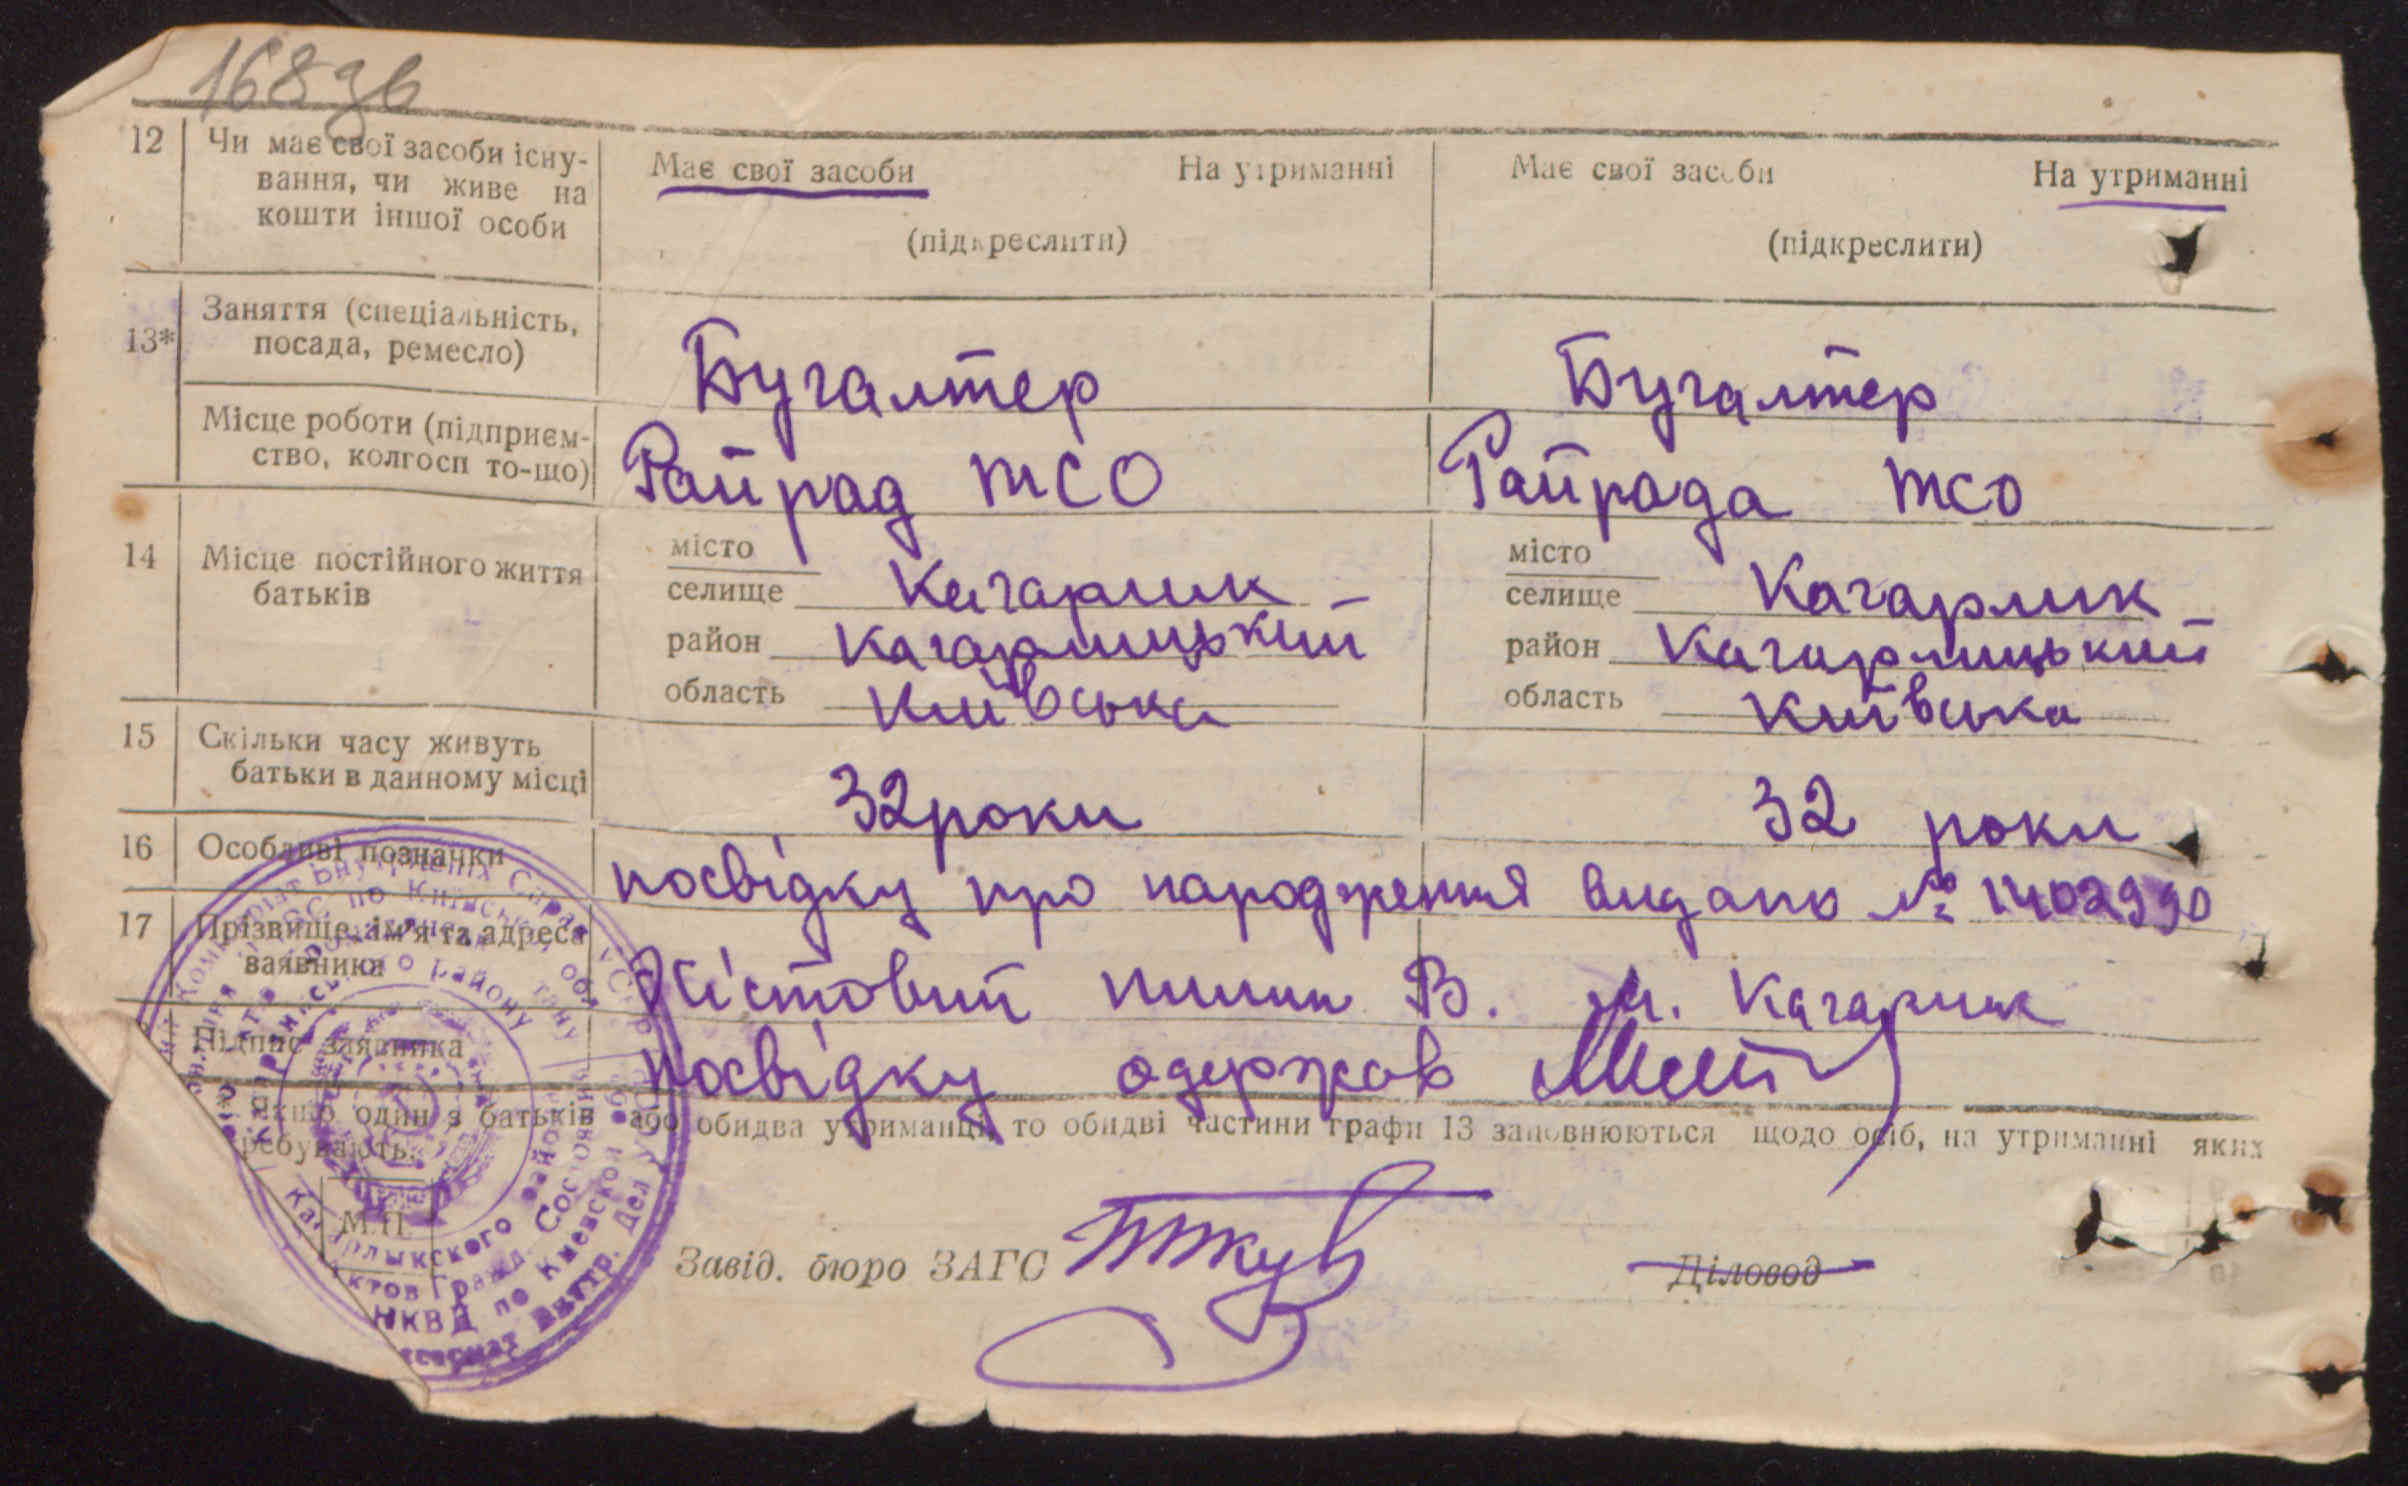 168зв
12 Чи має свої засоби існу-
вання, чи живе на
кошти іншої особи
Має свої засоби На утриманні
(підкреслити)
Має свої засоби На утриманні
(підкреслити)
13* Заняття (спеціальність,
посада, ремесло)
Бугалтер
Бугалтер
Місце роботи (підприєм-
ство, колгосп то-що)
Райрад ТСО
Райрада ТСО
14 Місце постійного життя
батьків
місто
селище Кагарлик
район Кагарлицький
область Київська
місто
селище Кагарлик
район Кагарлицький
область Київська
15 Скільки часу живуть
батьки в данному місці
32 роки
32 роки
16 Особливі позначки
посвідку про народження видано № 1402990
17 Прізвище, ім'я та адреса
заявника
Пилип В. м. Кагарлик
Підпис заявника
посвідку одержав
Якщо один з батьків або обидва утриманці, то обидві частини графи 13 заповнюються щодо осіб, на утриманні яких
М.П.
Завід. бюро ЗАГС
Діловод
Кагарлыкского района
Актов Гражд. Состояния
НКВД по Киевской обл.
Внутр. Дел УССР